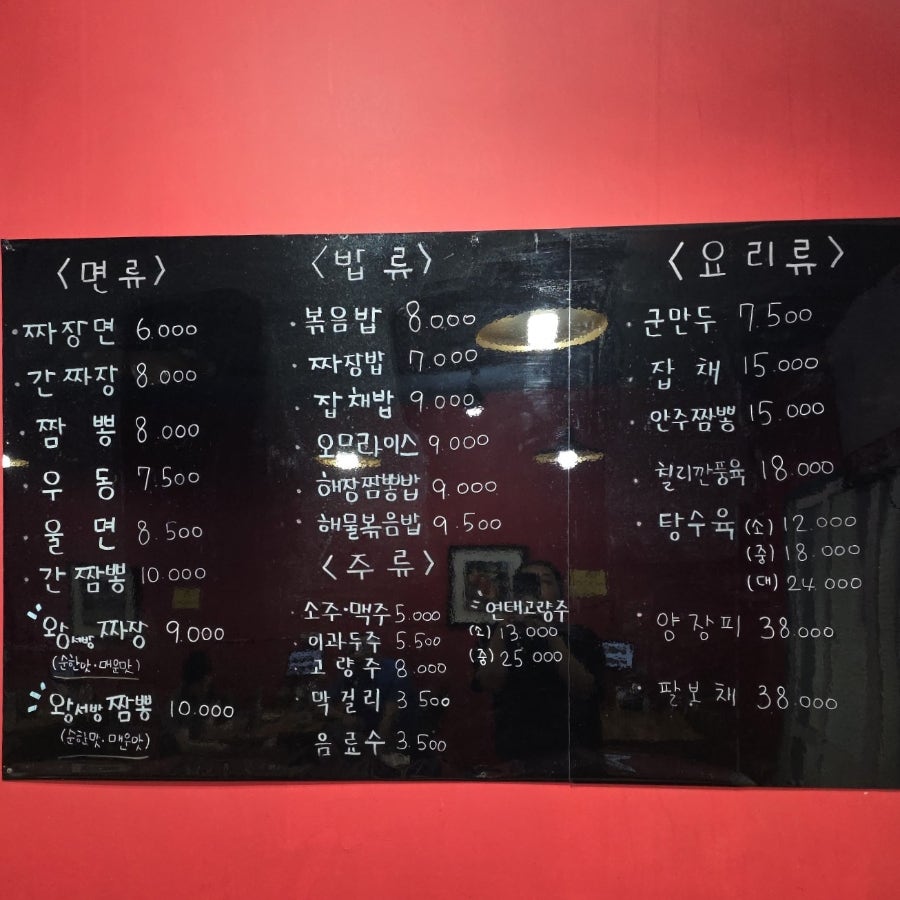 <면류>
· 짜장면 6.000
· 간짜장 8.000
· 짬뽕 8.000
· 우동 7.500
· 울면 8.500
· 간짬뽕 10.000
왕서방 짜장 9.000
(순한맛·매운맛)
왕서방 짬뽕 10.000
(순한맛·매운맛)
<밥류>
· 볶음밥 8.000
· 짜장밥 7.000
· 잡채밥 9.000
· 오므라이스 9.000
· 해장짬뽕밥 9.000
· 해물볶음밥 9.500
<주류>
· 소주·맥주 5.000
· 이과두주 5.500
· 고량주 8.000
· 막걸리 3.500
음료수 3.500
연태고량주
(소) 13.000
(중) 25.000
<요리류>
· 군만두 7.500
· 잡채 15.000
· 안주짬뽕 15.000
· 칠리깐풍육 18.000
· 탕수육 (소) 12.000
(중) 18.000
(대) 24.000
· 양장피 38.000
· 팔보채 38.000